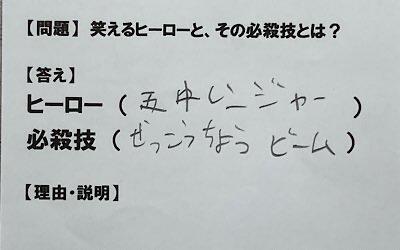 【問題】 笑えるヒーローと、その必殺技とは？
【答え】
ヒーロー （ 五中レンジャー ）
必殺技 （ ぜっこうちょう ビーム ）
【理由・説明】